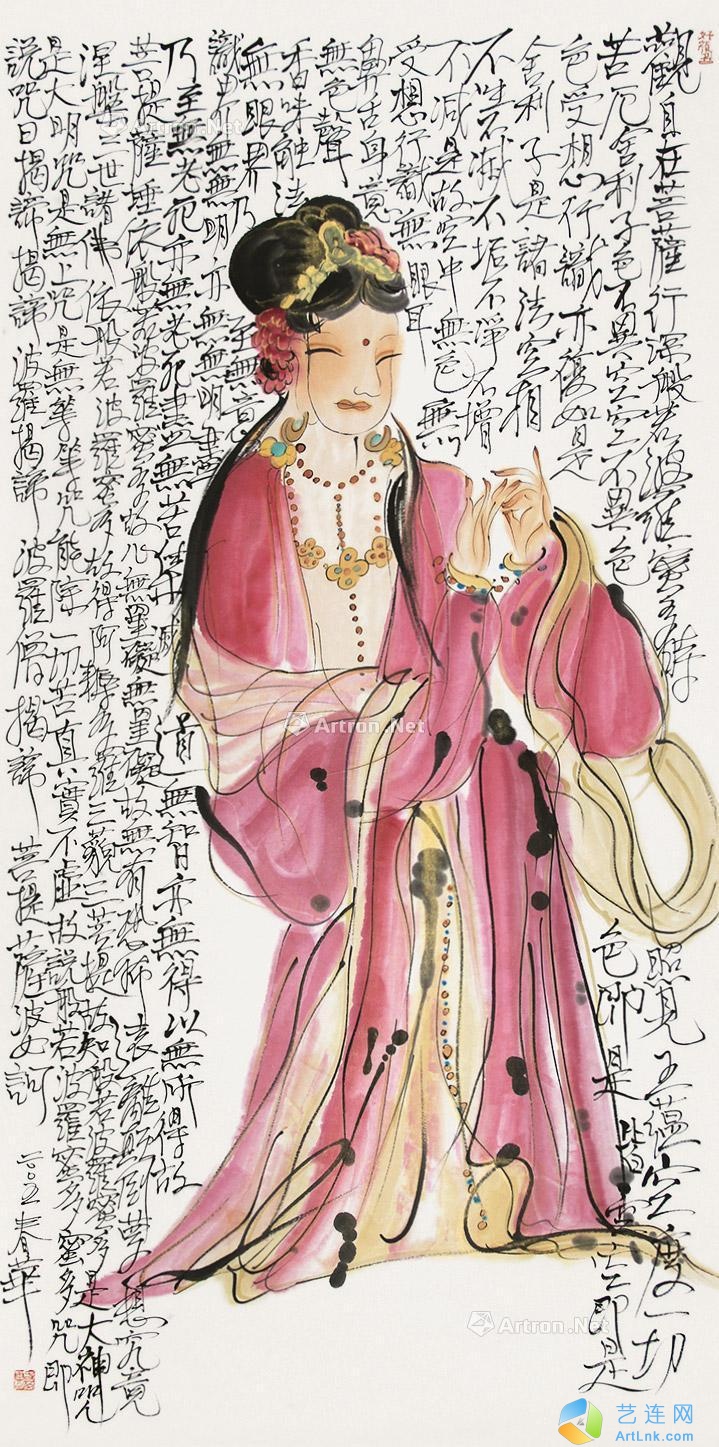 觀自在菩薩行深般若波羅蜜多時
照見五蘊空度一切
苦厄舍利子色不異空空不異色
色即是皆空空即是
色受想行識亦復如是
舍利子是諸法空相
不生不滅不垢不淨不增
不减是故空中無色無
受想行識無眼耳
鼻舌耳意
無色聲
香味触法
無眼界乃至無意
識界無無明亦無無明盡
乃至無老死亦無老死盡無苦集滅道無智亦無得以無所得故
菩提薩埵依般若波羅蜜多故心無罣礙無罣礙故無有恐怖遠離顛倒夢想究竟
涅槃三世諸佛依般若波羅蜜多故得阿耨多羅三藐三菩提故知般若波羅蜜多是大神咒
是大明咒是無上咒是無等等咒能除一切苦真實不虛故說般若波羅蜜多蜜多咒即
說咒曰揭諦揭諦波羅揭諦波羅僧揭諦菩提薩婆訶
二〇〇五春華
Artron.Net
Artron.Net
艺连网
ArtLnk.com